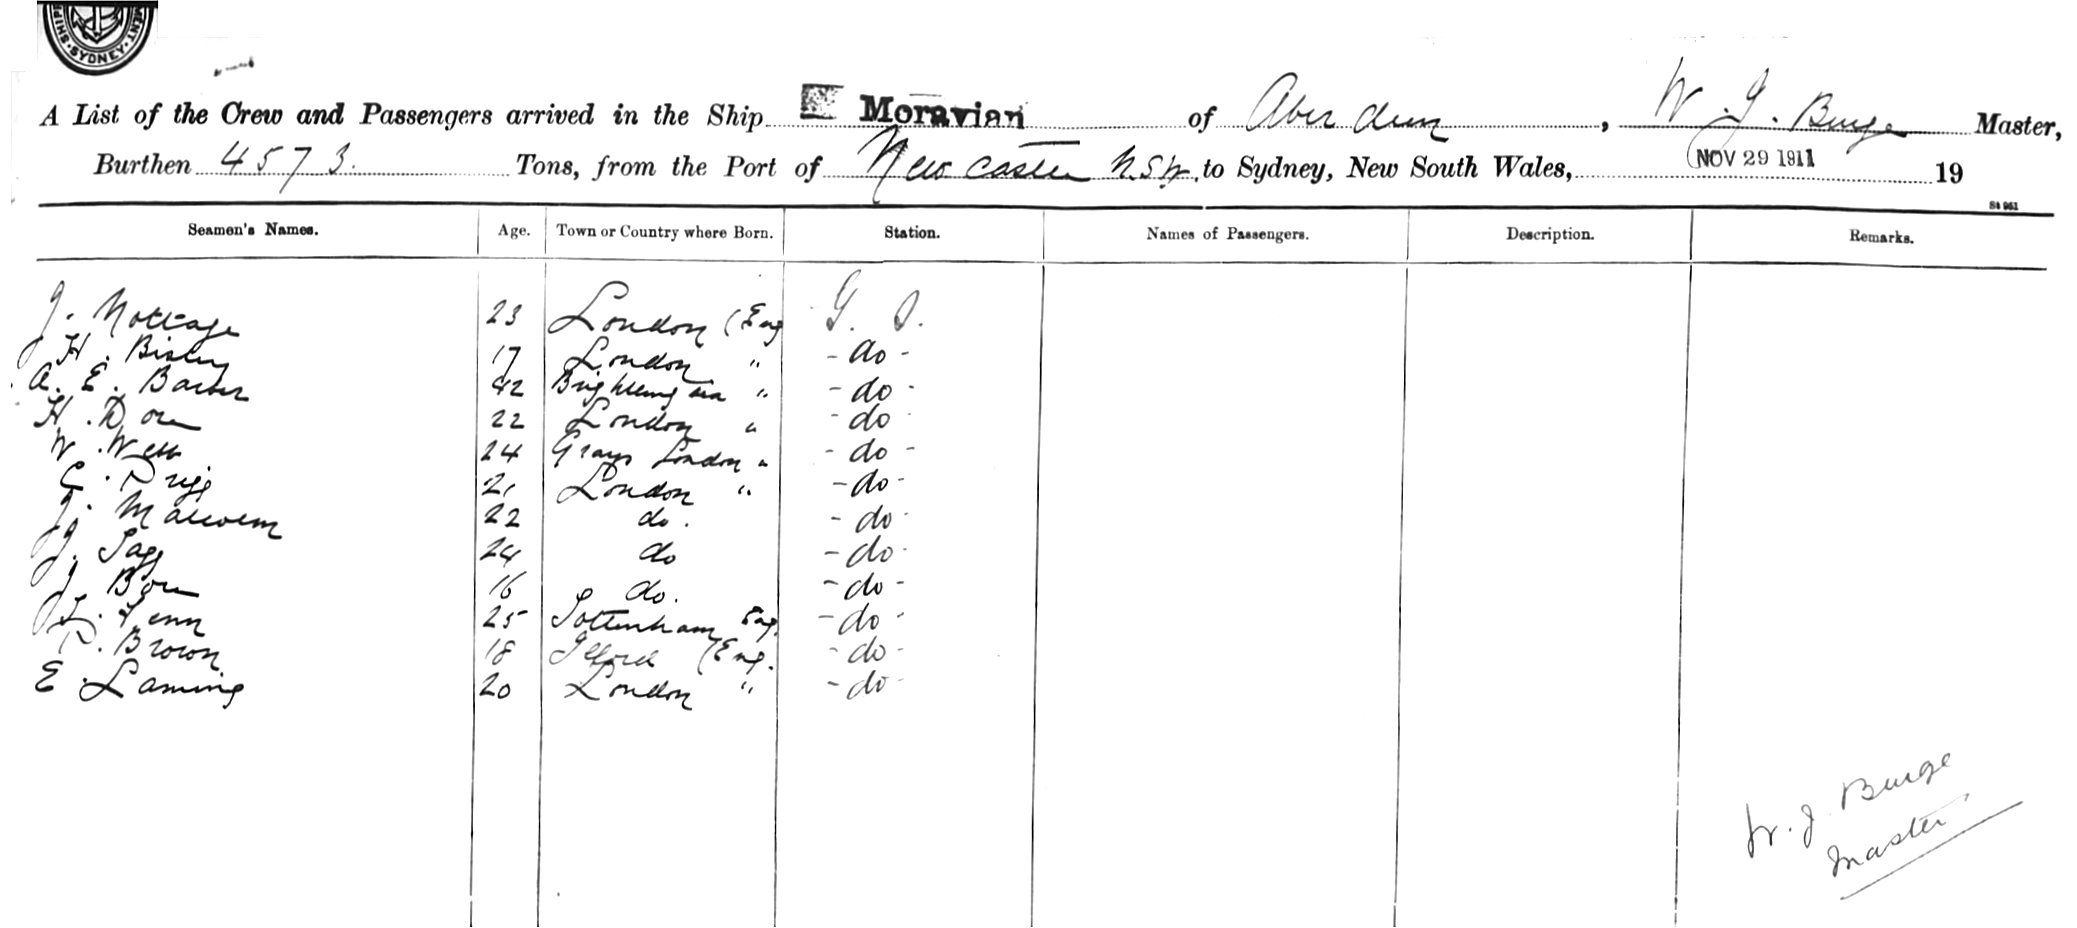 SYDNEY
A List of the Crew and Passengers arrived in the Ship Moravian of Aberdeen, W. J. Burge Master,
Burthen 4573. Tons, from the Port of Newcastle N.S.W. to Sydney, New South Wales, NOV 29 1911 19
St 961
Seamen's Names. Age. Town or Country where Born. Station. Names of Passengers. Description. Remarks.
J. Nottage 23 London (Eng G. S.
H. Bisley 17 London " - do -
A. E. Barber 42 Brightlingsea " - do -
H. Dore 22 London " - do -
W. Webb 24 Grays London " - do -
C. 21 London " - do -
J. Malcolm 22 do. - do -
J. Sagg 24 do - do -
J. Bore 16 do. - do -
L. Fenn 25 Tottenham Eng. - do -
R. Brown 18 Ilford (Eng. - do -
E. Laming 20 London " - do -
W. J. Burge
Master